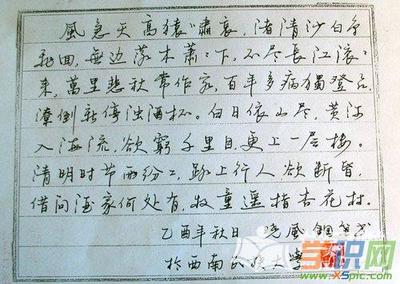 風急天高猿嘯哀，渚清沙白鸟
飛回，無边落木萧：下，不尽長江滚：
来，萬里悲秋常作客，百年多病獨登台，
潦倒新停浊酒杯。白日依山尽，黄河
入海流，欲窮千里目，更上一层楼。
清明时节雨纷：，路上行人欲断魂，
借问酒家何处有，牧童遥指杏花村。
乙酉年秋日 晓風
於西南民族大學
学识网
www.xspic.com